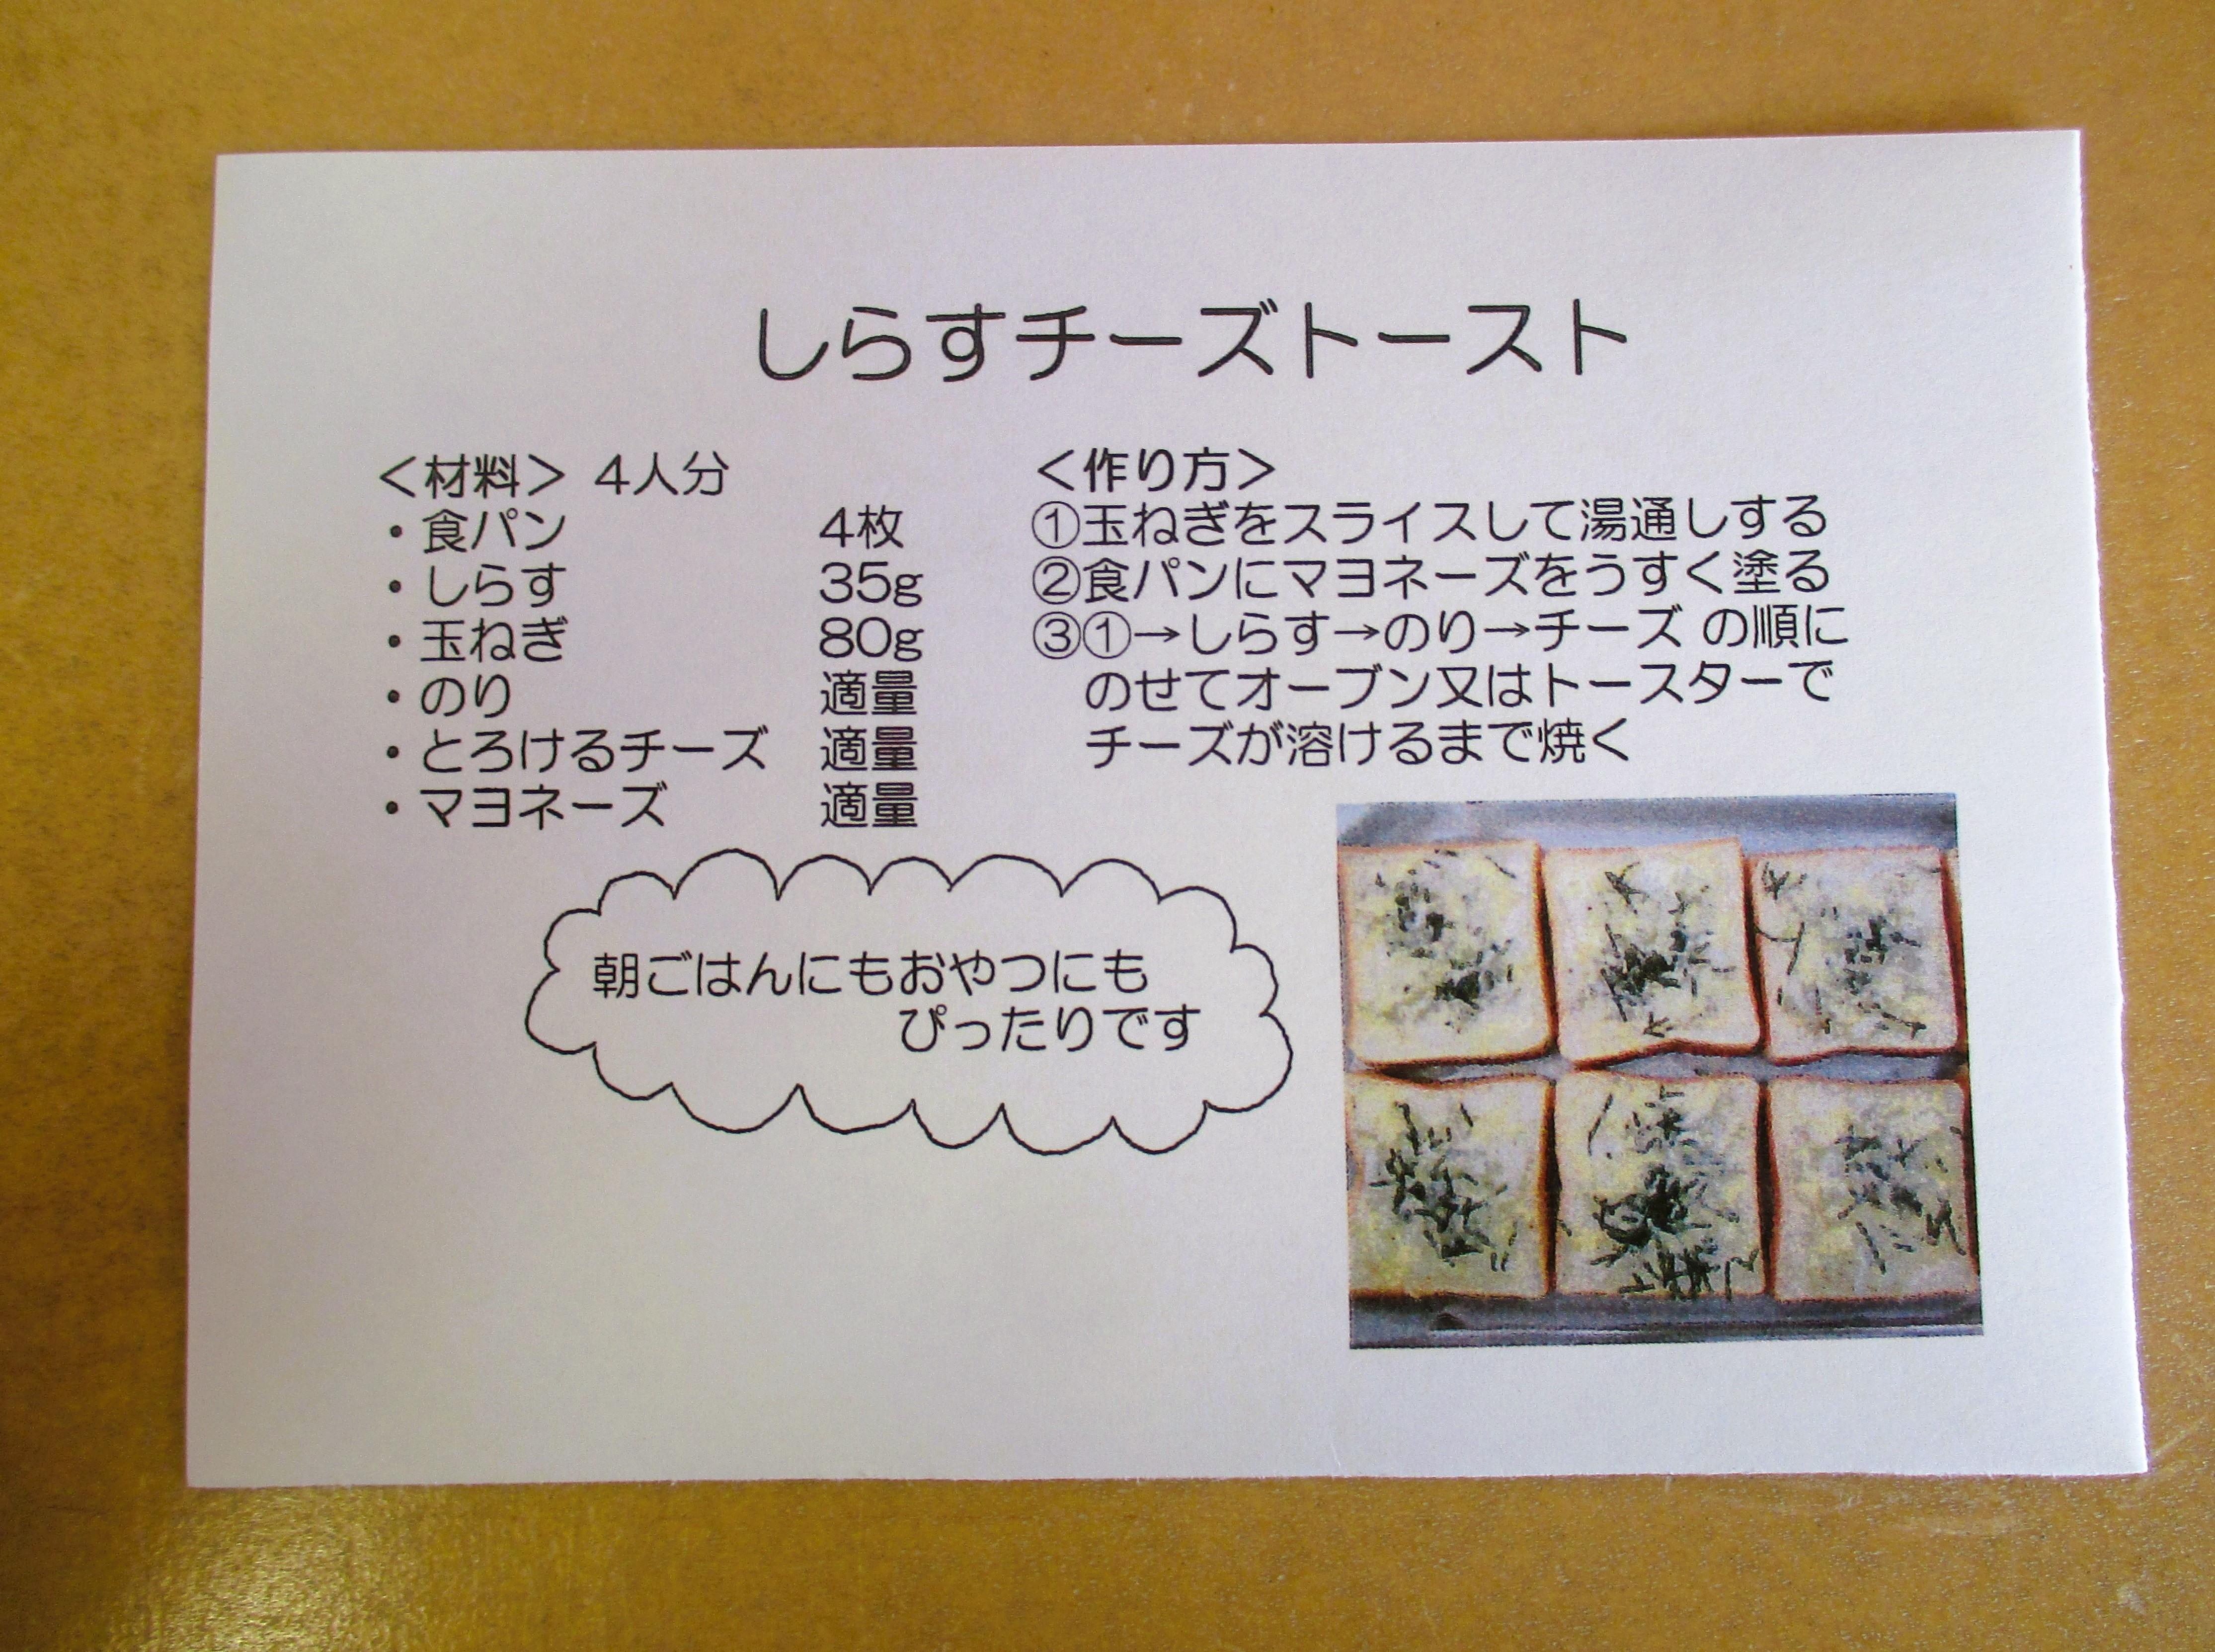 しらすチーズトースト
＜材料＞ 4人分
・食パン 4枚
・しらす 35g
・玉ねぎ 80g
・のり 適量
・とろけるチーズ 適量
・マヨネーズ 適量
＜作り方＞
①玉ねぎをスライスして湯通しする
②食パンにマヨネーズをうすく塗る
③①→しらす→のり→チーズ の順に
のせてオーブン又はトースターで
チーズが溶けるまで焼く
朝ごはんにもおやつにも
ぴったりです